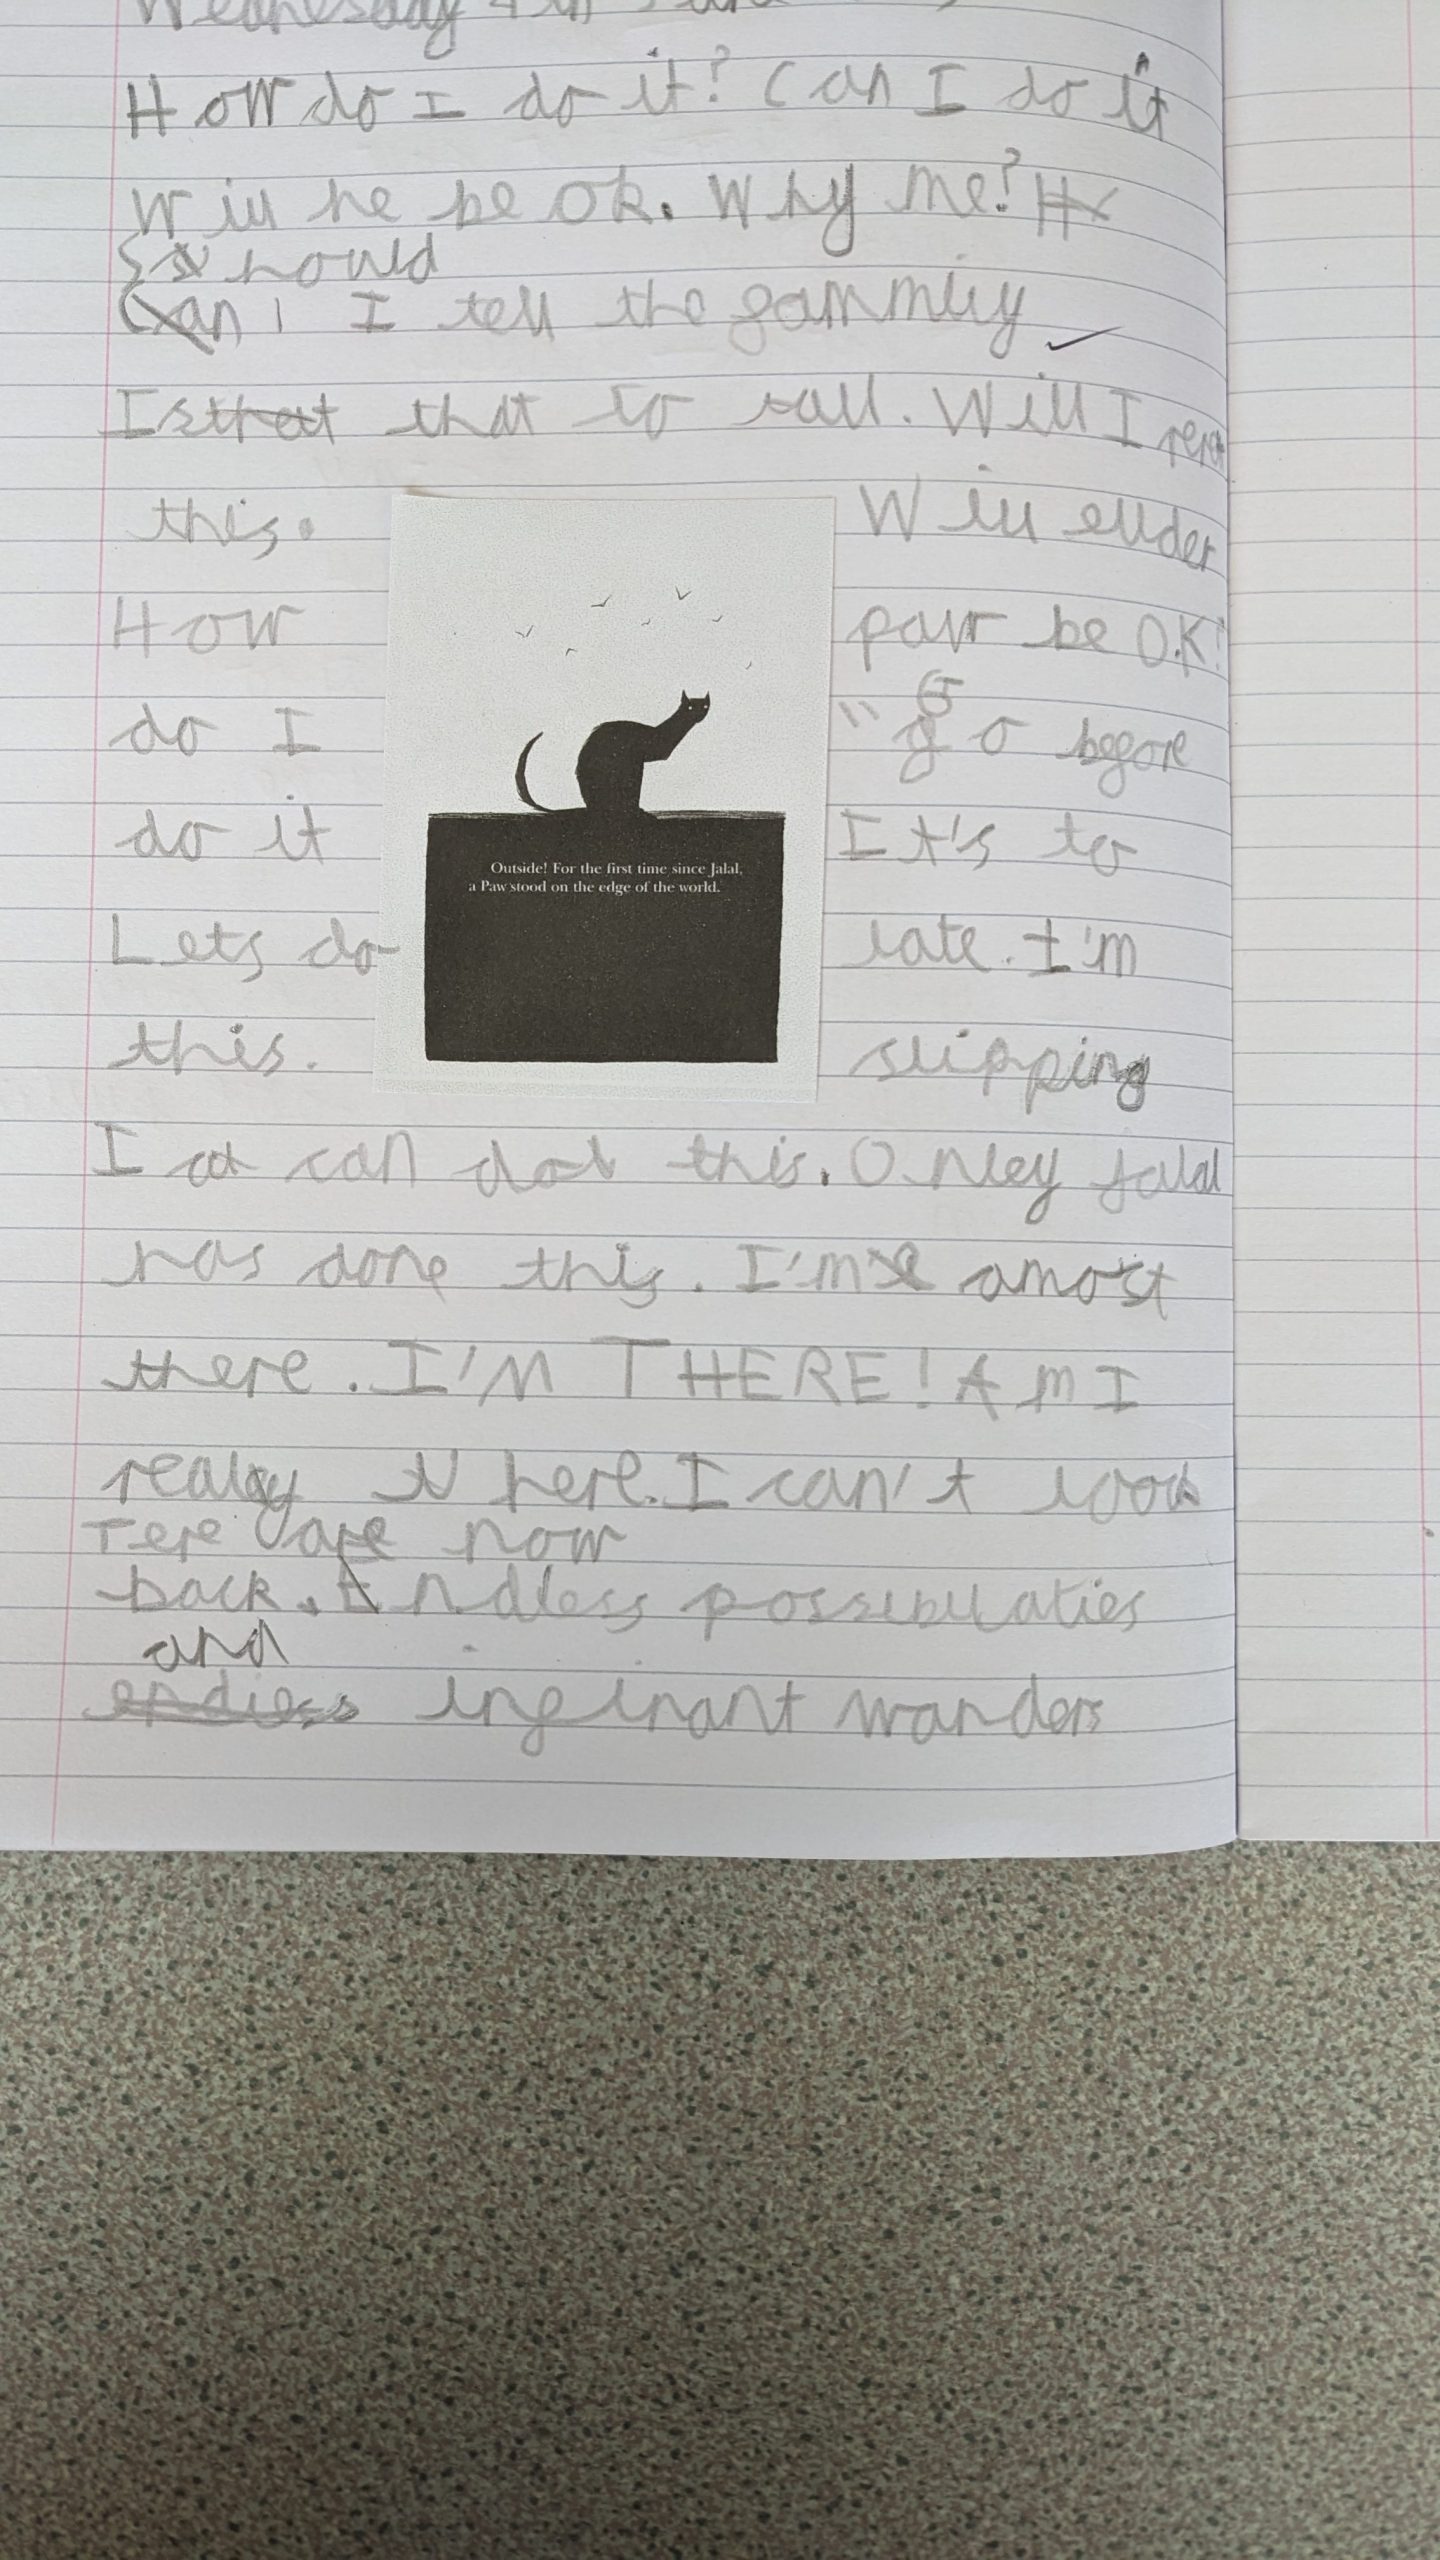 Wednesday 4th June
How do I do it? Can I do it
Will he be ok. Why me?
Should
Can I tell the gammiy
Is that that to tall. Will I
this.
Will ellder
How
paw be O.K!
do I
"Go begore
do it
It's to
Lets do
late. I'm
this.
slipping
Outside! For the first time since Jalal,
a Paw stood on the edge of the world.
I can do this. Onley Jalal
has done this. I'm amost
there. I'M THERE! Am I
realy here. I can't look
Tere are now
back. Endless possibilaties
and
endless inginant wanders